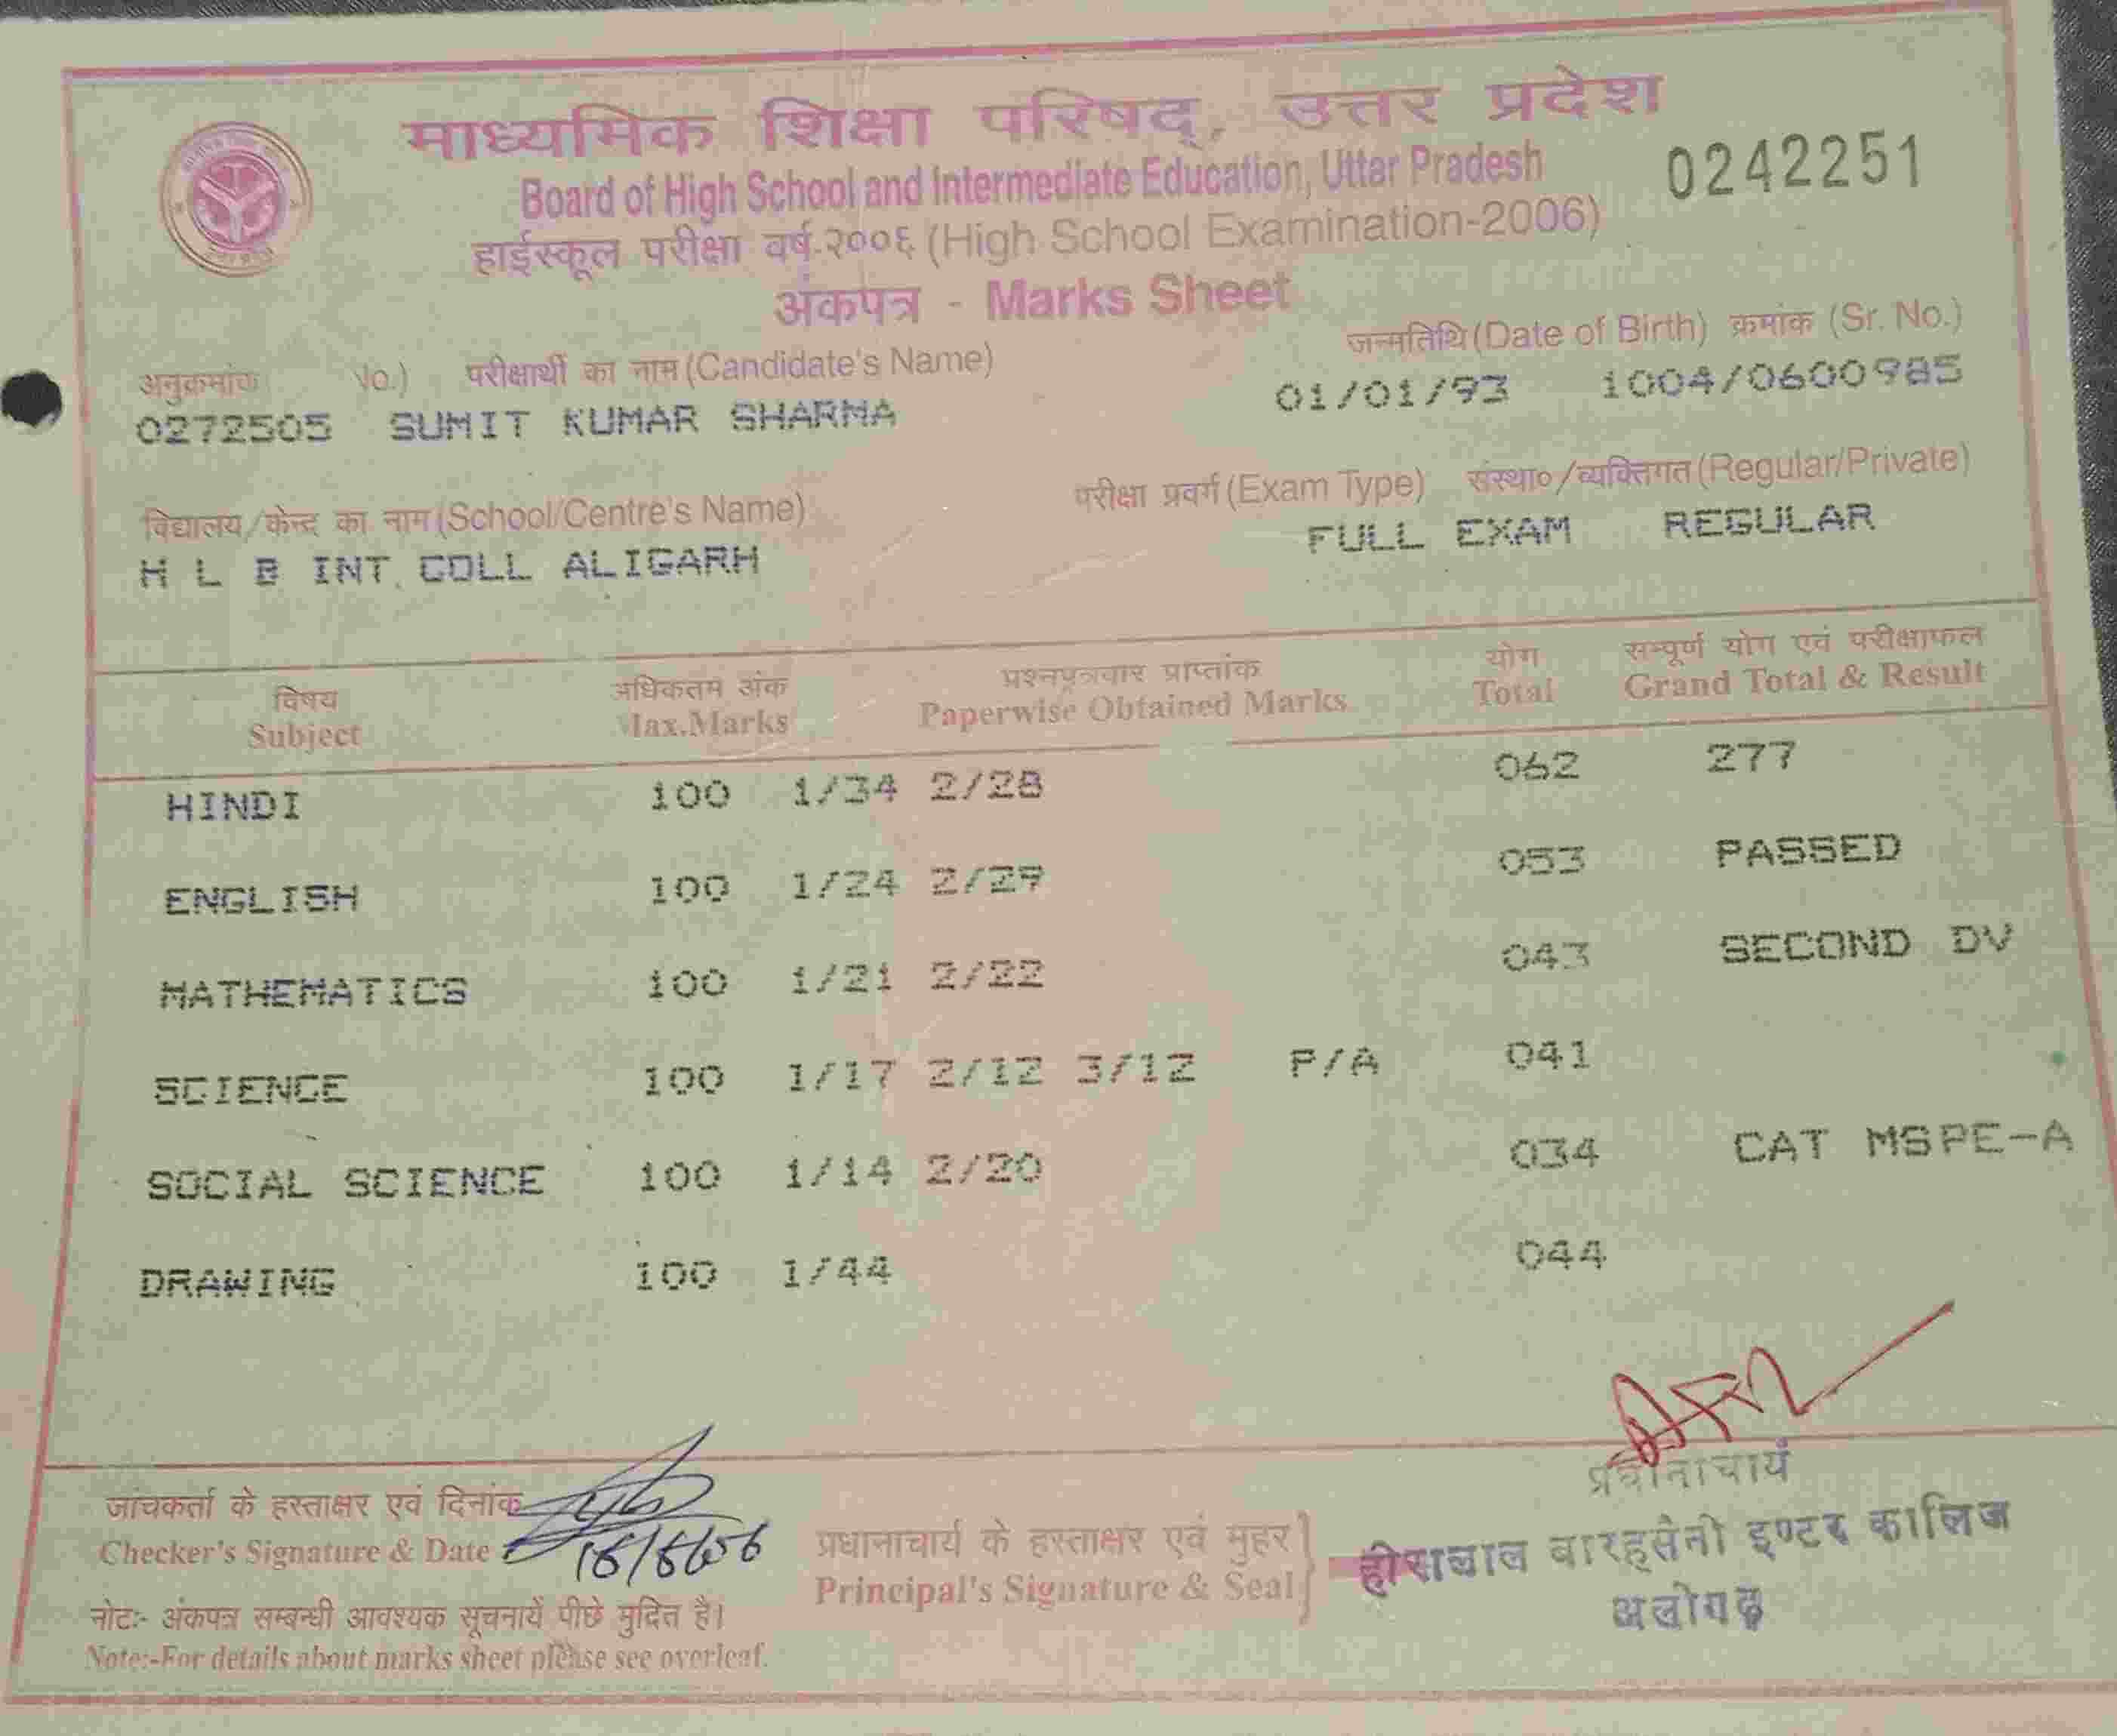 माध्यमिक शिक्षा परिषद्, उत्तर प्रदेश
Board of High School and Intermediate Education, Uttar Pradesh
0242251
हाईस्कूल परीक्षा वर्ष-२००६ (High School Examination-2006)
अंकपत्र - Marks Sheet
अनुक्रमांक No.) परीक्षार्थी का नाम (Candidate's Name) जन्मतिथि (Date of Birth) क्रमांक (Sr. No.)
0272505 SUMIT KUMAR SHARMA 01/01/93 1004/0600985
विद्यालय/केन्द्र का नाम (School/Centre's Name) परीक्षा प्रवर्ग (Exam Type) संस्था०/व्यक्तिगत (Regular/Private)
H L B INT COLL ALIGARH FULL EXAM REGULAR
विषय अधिकतम अंक प्रश्नपत्रवार प्राप्तांक योग सम्पूर्ण योग एवं परीक्षाफल
Subject Max.Marks Paperwise Obtained Marks Total Grand Total & Result
HINDI 100 1/34 2/28 062 277
ENGLISH 100 1/24 2/29 053 PASSED
MATHEMATICS 100 1/21 2/22 043 SECOND DV
SCIENCE 100 1/17 2/12 3/12 P/A 041
SOCIAL SCIENCE 100 1/14 2/20 034 CAT MSPE-A
DRAWING 100 1/44 044
जांचकर्ता के हस्ताक्षर एवं दिनांक
Checker's Signature & Date
प्रधानाचार्य के हस्ताक्षर एवं मुहर
Principal's Signature & Seal
प्रधानाचार्य
हीरालाल बारहसैनी इण्टर कालिज
अलीगढ़
नोट:- अंकपत्र सम्बन्धी आवश्यक सूचनायें पीछे मुद्रित है।
Note:-For details about marks sheet please see overleaf.